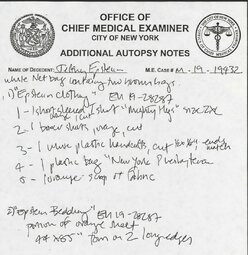 OFFICE OF
CHIEF MEDICAL EXAMINER
CITY OF NEW YORK
ADDITIONAL AUTOPSY NOTES
NAME OF DECEDENT: Jeffrey Epstein M.E. CASE # M-19-19432
white Net bag containing two brown bags.
1) "Epstein Clothing" EU 19-28287
1 - short sleeved shirt size 2XL
orange / cut
2 - 1 boxer shorts, orange, cut
3 - 1 white plastic handcuffs, cut
4 - 1 plastic bag "New York Presbyterian
5 - 1 orange strip of fabric
2) "Epstein Bedding" EU 19-28287
portion of orange sheet
torn on 2 long edges